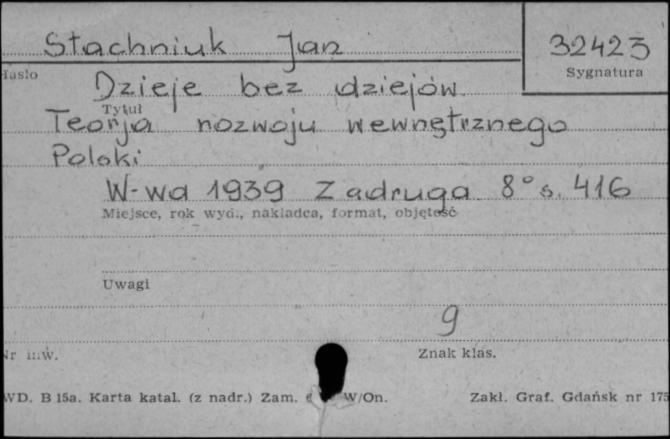 Stachniuk Jan 32423
Hasło Sygnatura
Dzieje bez dziejów
Tytuł
Teorja rozwoju wewnętrznego
Polski
W-wa 1939 Zadruga 8° s. 416
Miejsce, rok wyd., nakładca, format, objętość
Uwagi
9
Nr inw. Znak klas.
WD. B 15a. Karta katal. (z nadr.) Zam. W/On. Zakł. Graf. Gdańsk nr 175